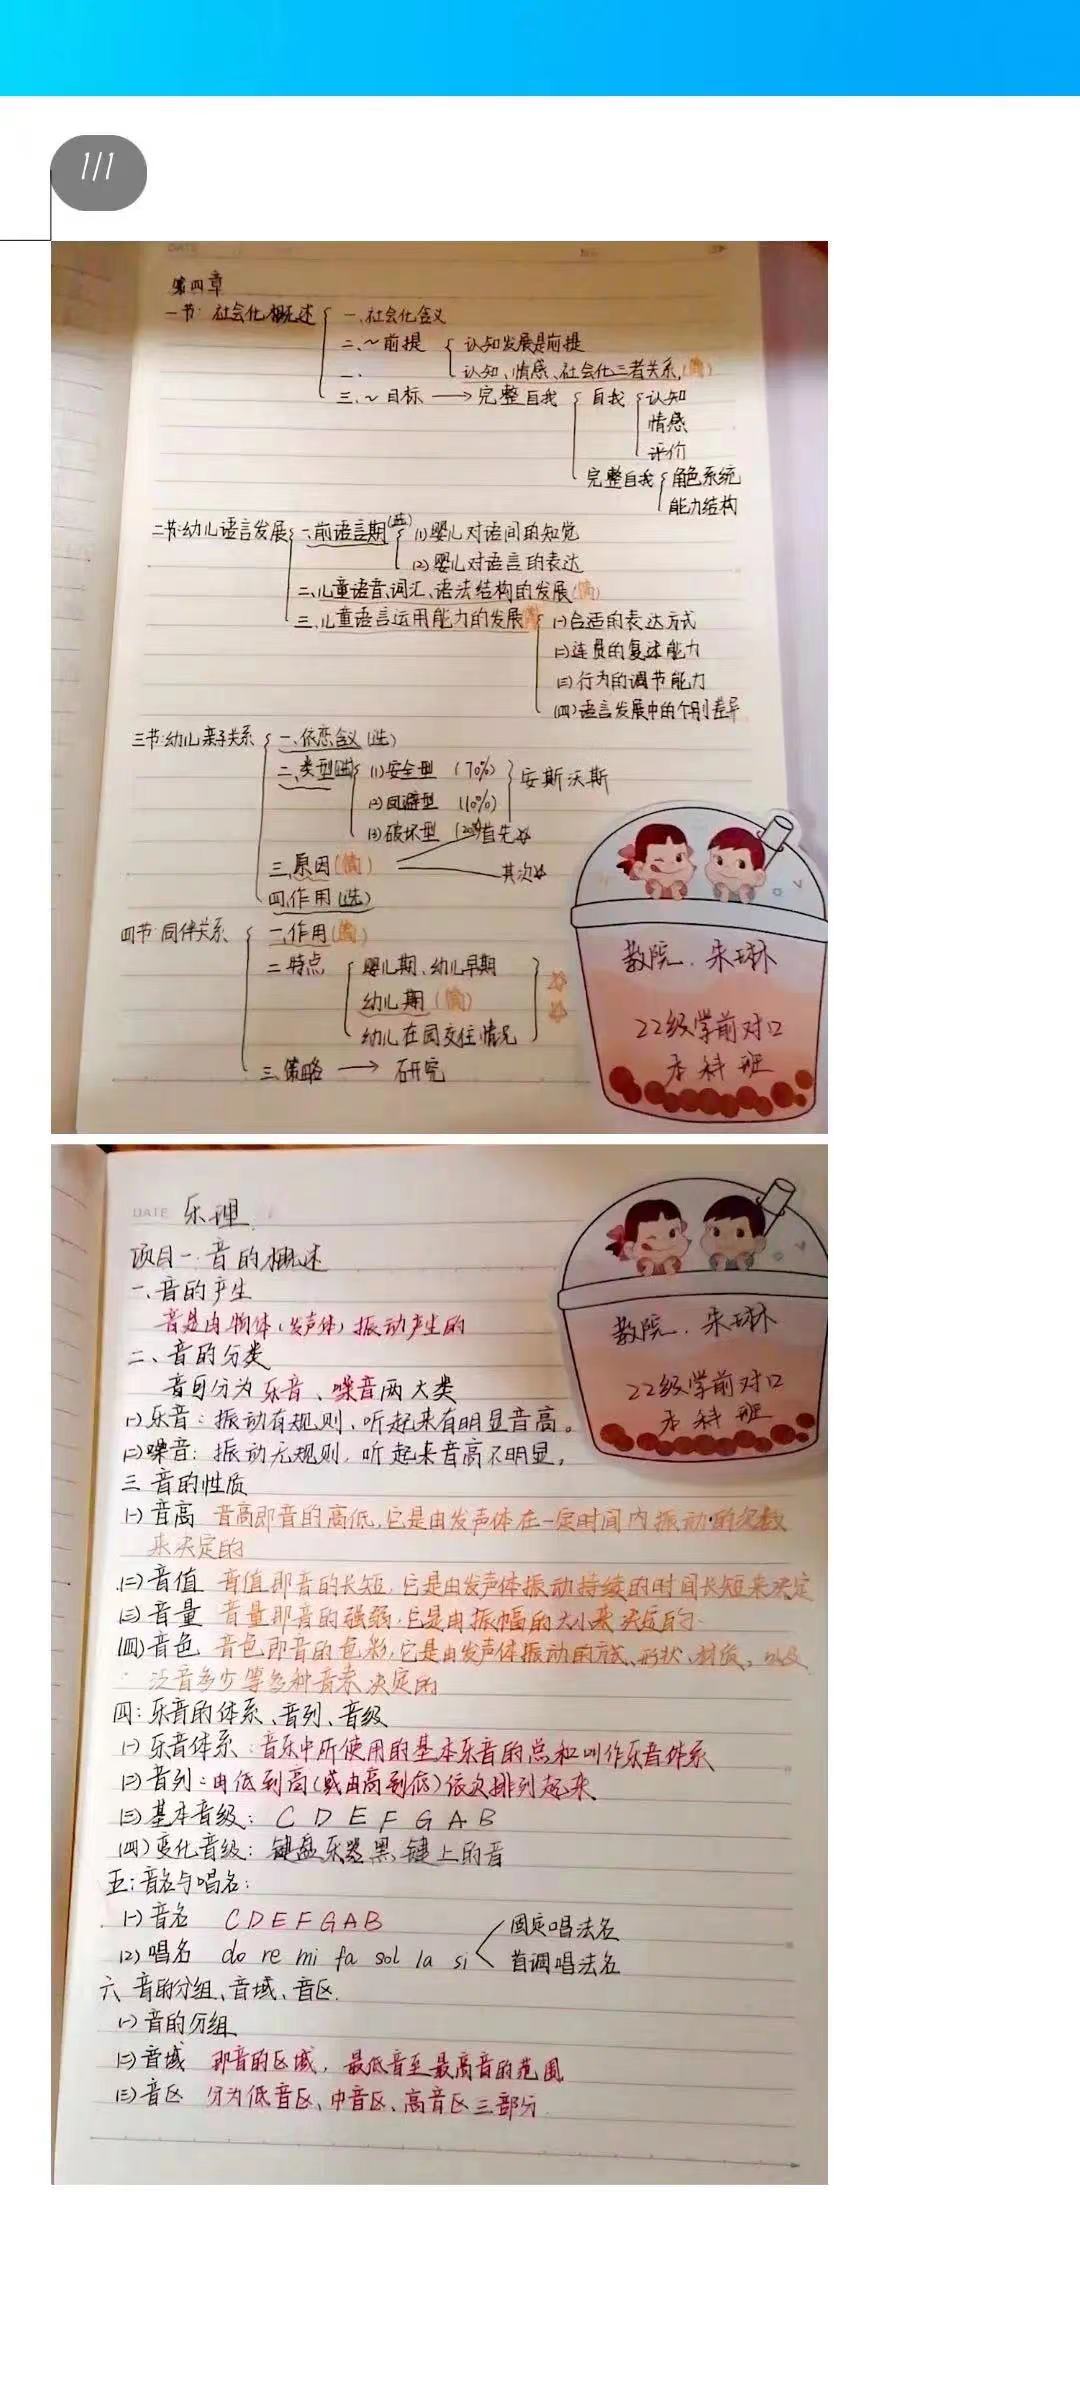 1/1
DATE
第四章
一节:社会化概述
一、社会化含义
二、~前提
认知发展是前提
认知、情感、社会化三者关系,(简)
三、~目标 → 完整自我
自我
认知
情感
评价
完整自我
角色系统
能力结构
二节:幼儿语言发展
一、前语言期
(1)婴儿对语间的知觉
(2)婴儿对语言的表达
二、儿童语音、词汇、语法结构的发展(简)
三、儿童语言运用能力的发展
(一)合适的表达方式
(二)连贯的复述能力
(三)行为的调节能力
(四)语言发展中的个别差异
三节:幼儿亲子关系
一、依恋含义(选)
二、类型(选)
(1)安全型 (70%)
(2)回避型 (10%)
(3)破坏型 (20%)
安斯沃斯
三、原因(简)
首先☆
其次☆
四、作用(选)
四节:同伴关系
一、作用(简)
二、特点
婴儿期、幼儿早期
幼儿期(简)
幼儿在园交往情况
三、策略 → 研究
教院. 朱琳
22级学前对口
本科班
DATE 乐理.
项目一:音的概述
一、音的产生
音是由物体(发声体)振动产生的
二、音的分类
音可分为乐音、噪音两大类
(一)乐音:振动有规则、听起来有明显音高。
(二)噪音:振动无规则,听起来音高不明显。
三 音的性质
(一)音高 音高即音的高低,它是由发声体在一定时间内振动的次数
来决定的
(二)音值 音值即音的长短,它是由发声体振动持续的时间长短来决定
(三)音量 音量即音的强弱,它是由振幅的大小来决定的.
(四)音色 音色即音的色彩,它是由发声体振动的方式、形状、材质、以及
泛音多少等多种音来决定的
四:乐音的体系、音列、音级
(一)乐音体系:音乐中所使用的基本乐音的总和叫作乐音体系
(二)音列:由低到高(或由高到低)依次排列起来
(三)基本音级: C D E F G A B
(四)变化音级: 键盘乐器黑键上的音
五:音名与唱名:
(一)音名 C D E F G A B
(2)唱名 do re mi fa sol la si
固定唱法名
首调唱法名
六 音的分组、音域、音区.
(一)音的分组
(二)音域 即音的区域, 最低音至最高音的范围
(三)音区 分为低音区、中音区、高音区三部分.
教院. 朱琳
22级学前对口
本科班